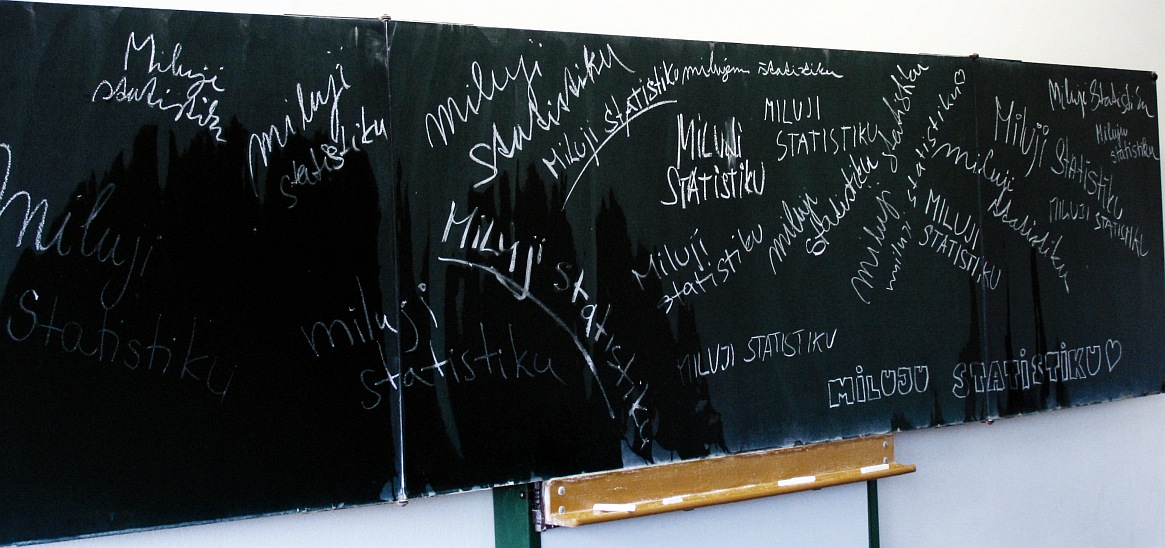 Miluji
statistiku
miluji
statistiku
miluji
Statistiku
miluji
statistiku
miluji
statistiku
Miluji statistiku
milujem statistiku
Miluji
statistiku
MILUJI
STATISTIKU
MILUJI
STATISTIKU
Miluji
statistiku
miluji
statistiku
MILUJI STATISTIKU
miluji statistiku
miluji statistiku
MILUJI
STATISTIKU
miluji
statistiku
Miluji
statistiku
Miluji statistiku
Miluju
statistiku
MILUJI STATISTIKU
MILUJU STATISTIKU